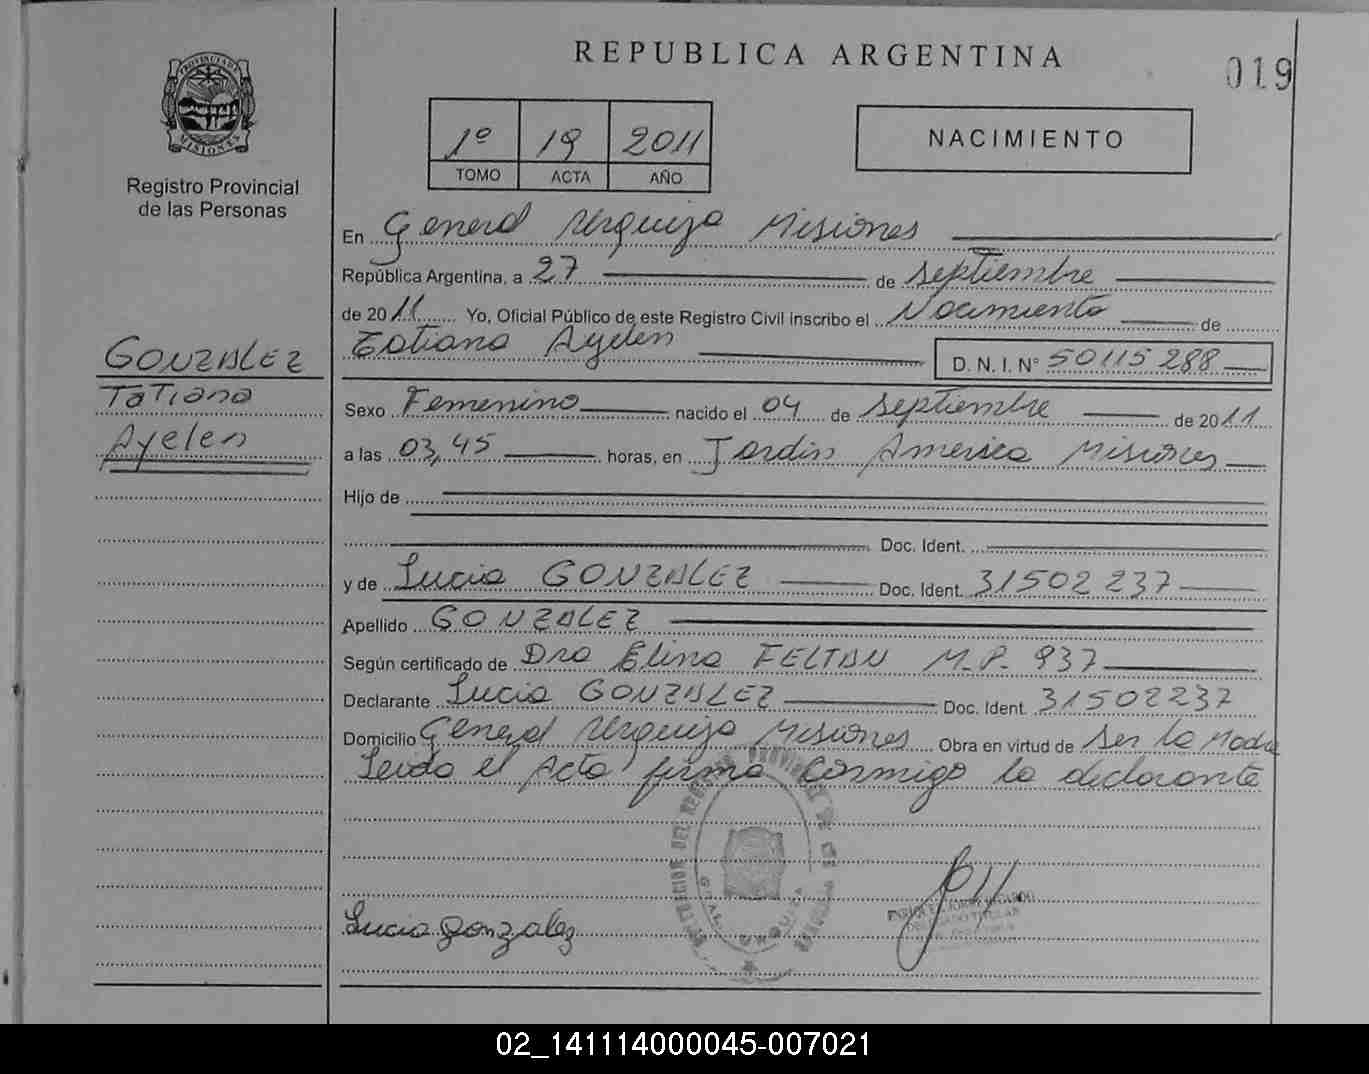 REPUBLICA ARGENTINA
019
PROVINCIA DE
MISIONES
Registro Provincial
de las Personas
1º 19 2011
TOMO ACTA AÑO
NACIMIENTO
En General Urquiza Misiones
República Argentina, a 27 de septiembre
de 2011 Yo, Oficial Público de este Registro Civil inscribo el Nacimiento de
Tatiana Ayelen D. N. I. Nº 50115288
GONZALEZ
Tatiana
Ayelen
Sexo Femenino nacido el 04 de septiembre de 2011
a las 03,45 horas, en Jardin America Misiones
Hijo de
Doc. Ident.
y de Lucia GONZALEZ Doc. Ident. 31502237
Apellido GONZALEZ
Según certificado de Dra Elina FELTAN M.P. 937
Declarante Lucia GONZALEZ Doc. Ident. 31502237
Domicilio General Urquiza Misiones Obra en virtud de Ser la Madre
Leida el Acta firma conmigo la declarante
Lucia gonzalez
GRAL. URQUIZA
02_141114000045-007021